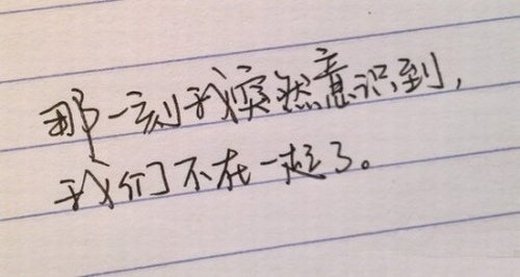 那一刻我突然意识到,
我们不在一起了。